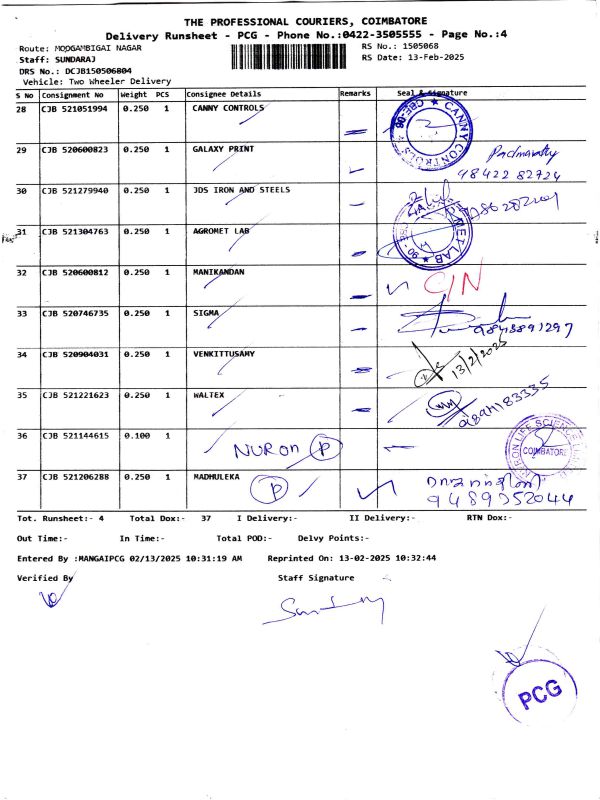 THE PROFESSIONAL COURIERS, COIMBATORE
Delivery Runsheet - PCG - Phone No.:0422-3505555 - Page No.:4
Route: MOOGAMBIGAI NAGAR
RS No.: 1505068
Staff: SUNDARAJ
RS Date: 13-Feb-2025
DRS No.: DCJB150506804
Vehicle: Two Wheeler Delivery
S No Consignment No Weight PCS Consignee Details Remarks Seal & Signature
28 CJB 521051994 0.250 1 CANNY CONTROLS CANNY CONTROLS CBE-06
29 CJB 520600823 0.250 1 GALAXY PRINT
9842282724
30 CJB 521279940 0.250 1 JDS IRON AND STEELS
31 CJB 521304763 0.250 1 AGROMET LAB
32 CJB 520600812 0.250 1 MANIKANDAN C/N
33 CJB 520746735 0.250 1 SIGMA 9843891297
34 CJB 520904031 0.250 1 VENKITTUSAMY 13/2/2025
35 CJB 521221623 0.250 1 WALTEX
36 CJB 521144615 0.100 1 NURON P COIMBATORE
37 CJB 521206288 0.250 1 MADHULEKA P
9489352044
Tot. Runsheet:- 4 Total Dox:- 37 I Delivery:- II Delivery:- RTN Dox:-
Out Time:- In Time:- Total POD:- Delvy Points:-
Entered By :MANGAIPCG 02/13/2025 10:31:19 AM Reprinted On: 13-02-2025 10:32:44
Verified By Staff Signature
PCG